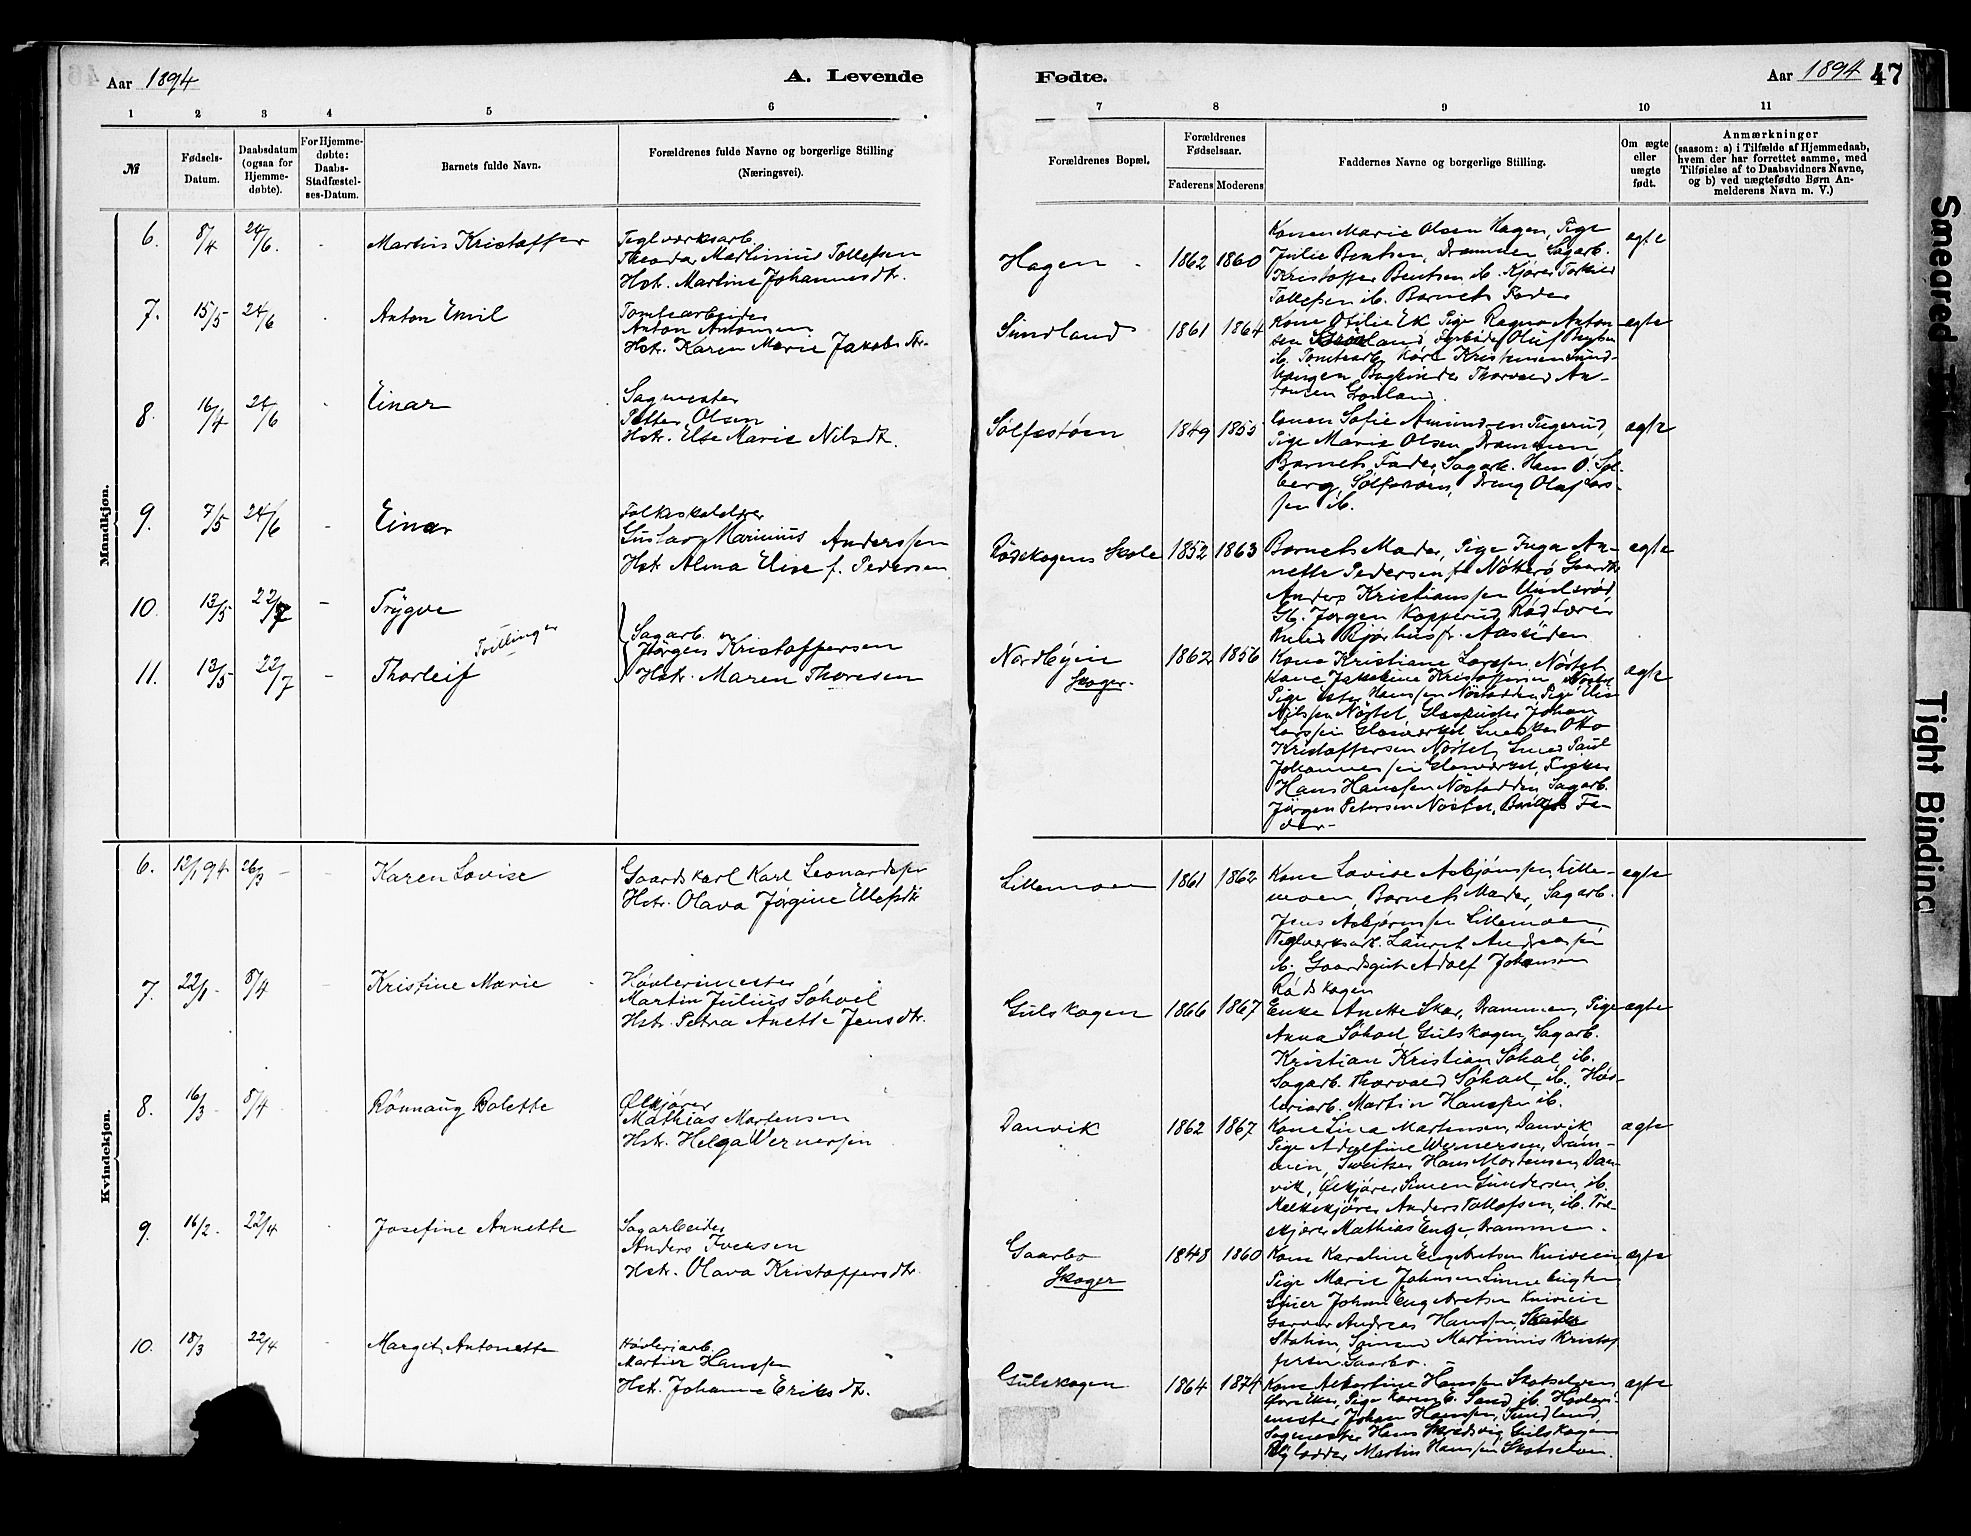 Aar 1894
A. Levende
Fødte.
Aar 1894 47
1 2 3 4 5 6 7 8 9 10 11
№
Fødsels-
Datum.
Daabsdatum
(ogsaa for
Hjemme-
døbte).
For Hjemme-
døbte:
Daabs-
Stadfæstel-
ses-Datum.
Barnets fulde Navn.
Forældrenes fulde Navne og borgerlige Stilling
(Næringsvei).
Forældrenes Bopæl.
Forældrenes
Fødselsaar.
Faderens Moderens
Faddernes Navne og borgerlige Stilling.
Om ægte
eller
uægte
født.
Anmærkninger
(saasom: a) i Tilfælde af Hjemmedaab,
hvem der har forrettet samme, med
Tilføielse af to Daabsvidners Navne,
og b) ved uægtefødte Børn An-
melderens Navn m. V.)
Mandkjøn.
6. 8/4 24/6 - Martin Kristoffer
Teglværksarb.
Theodor Martinius Tollefsen
Hst. Martine Johannesdtr.
Hagen - 1862 1860
Konen Marie Olsen Hagen, Pige
Julie Bentsen, Drammen, Sagarb.
Kristoffer Bentsen ib. Kjører Torkild
Tollefsen ib. Barnets Fader
ægte
7. 15/5 24/6 - Anton Emil
Tomtearbeider
Anton Antonsen
Hst. Karen Marie Jakobsdtr.
Sundland 1861 1864
Kone Otilie Ek, Pige Ragna Anton-
sen Fyrbøder Oluf
ib. Tomtearb. Karl Kristensen Sund-
Bogbinder Thorvald An-
tonsen Grønland.
ægte
8. 16/4 24/6 - Einar
Sagmester
Petter Olsen
Hst. Else Marie Nilsdtr.
Solfestøen 1849 1855
Konen Sofie Amundsen
Pige Marie Olsen, Drammen
Barnets Fader, Sagarb. Hans O. Sol-
berg, Solfestøen, Dreng Olaf Lars-
sen ib.
ægte
9. 7/5 24/6 - Einar
Folkeskolelærer
Gustav Marinius Anderssen
Hst. Alma Elise f. Pedersen
Rødskogens Skole 1852 1863
Barnets Moder, Pige Inga An-
nette Pedersen fr. Nøtterø Gaardbr.
Anders Kristianssen Undsrød,
Gb. Jørgen Kopperud, Rød Lærer
Knud Bjørhus fr. Aassiden
ægte
10. 13/5 22/7 - Trygve
Tvillinger
11. 13/5 22/7 - Thorleif
Sagarb.
Jørgen Kristoffersen
Hst. Maren Thoresen
Nordbyen
Skoger. 1862 1856
Kone Kristiane Larssen, Nøstet
Kone Jakobine Kristoffersen Nøstet
Pige Hanssen Nøstodden, Pige
Nilssen Nøstet, Glaspuster Johan
Larssen Glasværket Snedker Otto
Kristoffersen Nøstet, Smed Paul
Johannessen Glasværket, Fisker
Hans Hanssen Nøstodden, Sagarb.
Jørgen Petersen Nøstet, Barnets Fa-
der-
ægte
Kvindekjøn.
6. 12/1 94 26/3 - - Karen Lovise
Gaardskarl Karl Leonardssen
Hst. Olava Jørgine
Lillemoen 1861 1862
Kone Lovise Asbjørnsen, Lille-
moen, Barnets Moder, Sagarb.
Jens Asbjørnssen Lillemoen
Teglverksarb. Laurits Andreassen
ib. Gaardsgut Adolf Johansen
Rødskogen
ægte
7. 22/1 - 8/4 - Kristine Marie
Høvlerimester
Martin Julius Solvel
Hst. Petra Anette Jensdtr.
Gulskogen 1866 1867
Enke Anette Skar, Drammen, Pige
Anna Gulskogen, Sagarb.
Kristian Kristian ib.
Sagarb. Thorvald ib., Høv-
leriarb. Martin Hanssen ib.
ægte
8. 16/3 - 8/4 - Rønnaug Bolette
Ølkjører
Mathias Mortensen
Hst. Helga Wernerssen
Danvik 1862 1867
Kone Lina Martinsen, Danvik
Pige Adolfine Wernersen, Dram-
men, Sveitser Hans Mortensen, Dan-
vik, Ølkjører Simen Gundersen, ib.
Melkekjører Anders Tollofsen, ib. Træ-
kjører Mathias Enge, Drammen.
ægte
9. 16/2 - 22/4 - Josefine Annette
Sagarbeider
Anders Iversen
Hst. Olava Kristoffersdtr.
Gaarbo
Skoger 1848 1860
Kone Karoline Engebretsen Kniveien
Pige Marie Johnsen
Johan Engebretsen Kniveien
Garver Andreas Hanssen, Skoger
Station, Martinius Kristof
fersen Gaarbo.
ægte
10. 18/3 22/4 - Margit Antonette
Høvleriarb.
Martin Hanssen
Hst. Johanne Eriksdtr.
Gulskogen 1864 1874
Kone Albertine Hanssen Skotselven
Øvre Eker, Pige Karen E. Sand, ib. Høvleri-
mester Johan Hanssen, Sundland,
Sagmester Hans Gulskogen
Martin Hanssen Skotselven.
ægte
Smeared
Tight Binding